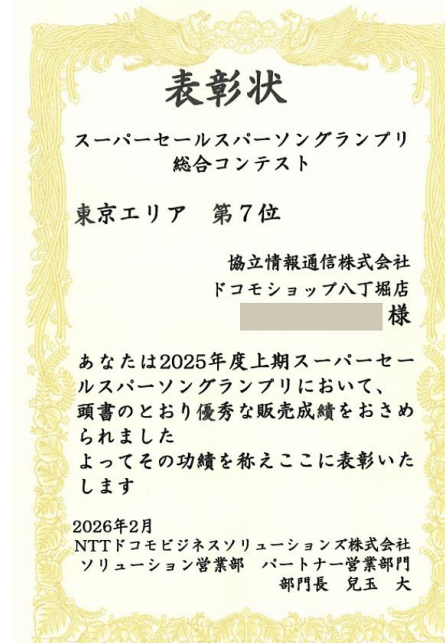 表彰状
スーパーセールスパーソングランプリ
総合コンテスト
東京エリア　第７位
協立情報通信株式会社
ドコモショップ八丁堀店
様
あなたは2025年度上期スーパーセー
ルスパーソングランプリにおいて、
頭書のとおり優秀な販売成績をおさめ
られました
よってその功績を称えここに表彰いた
します
2026年2月
NTTドコモビジネスソリューションズ株式会社
ソリューション営業部　パートナー営業部門
部門長　兒玉　大